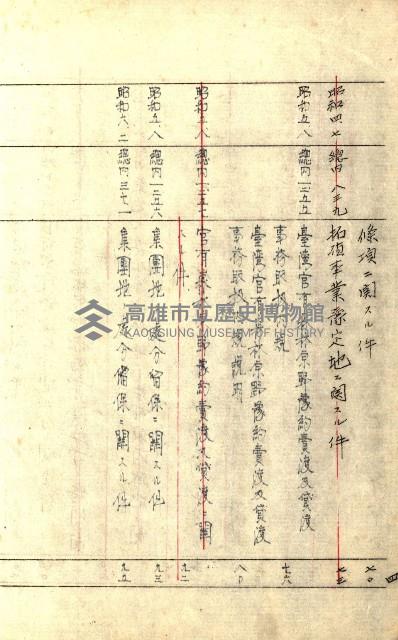 四
條項ニ関スル件 七〇
昭和四、七 總内 八三九 拓殖事業豫定地ニ関スル件 七三
昭和五、八 總内一二五五 臺湾官有森林原野豫約賣渡及貸渡
事務取扱規 七六
臺湾官有森林原野豫約賣渡及貸渡
事務取扱 說明 八〇
昭和五、八 總内一二五七 官有森 野豫約賣渡及貸渡ニ關
件 九二
昭和五、八 總内一二五六 集團地 處分留保ニ關スル件 九三
昭和六、二 總内三七一 集團地 處分留保ニ關スル件 九五
高雄市立歷史博物館
KAOHSIUNG MUSEUM OF HISTORY